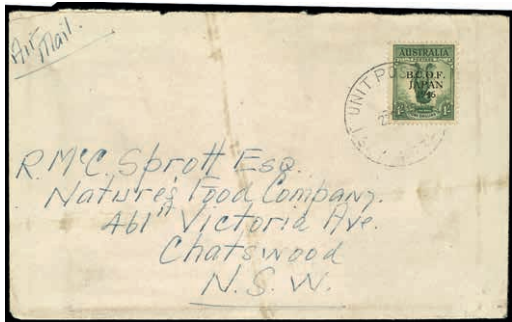 Air
Mail.
AUSTRALIA
B.C.O.F.
JAPAN
UNIT POS
R. McC. Sprott Esq.
Nature's Food Company.
461A Victoria Ave.
Chatswood
N.S.W.